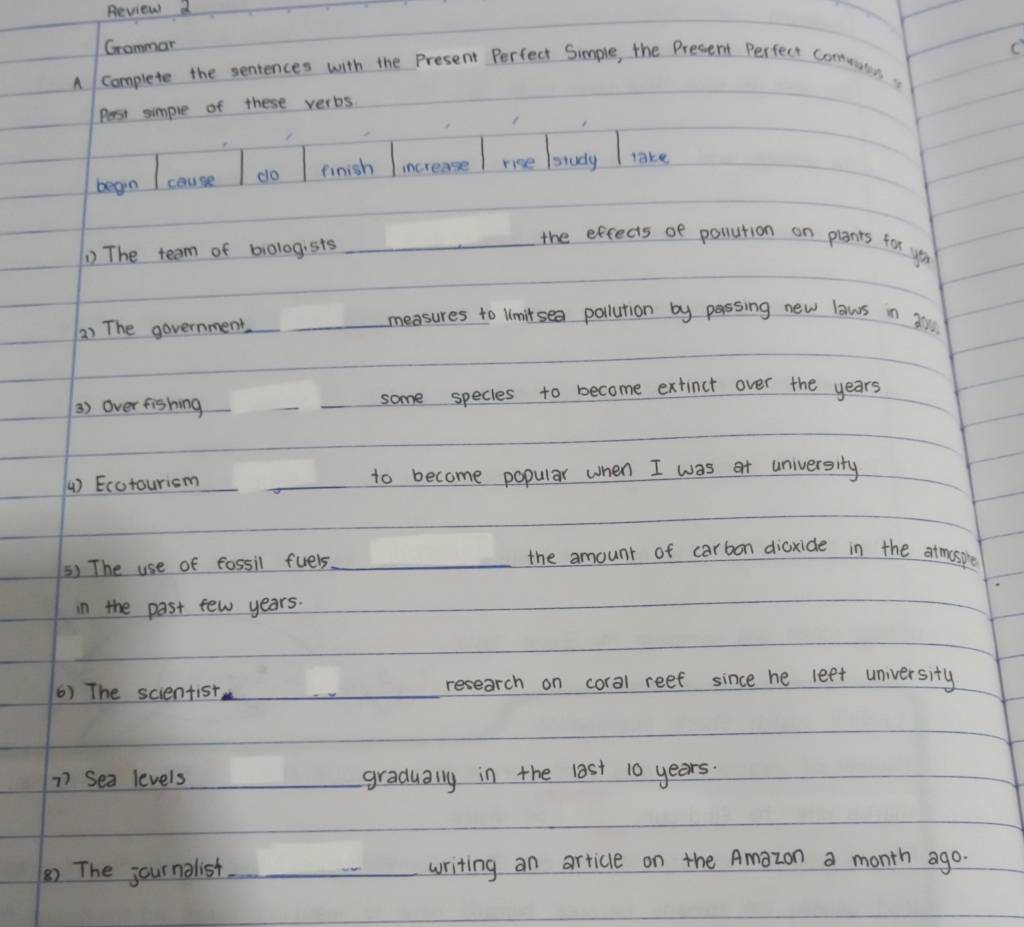 Review 2
Grammar
A Complete the sentences with the Present Perfect Simple, the Present Perfect Continuous or
Past simple of these verbs
begin cause do finish increase rise study take
1) The team of biologists the effects of pollution on plants for
2) The government measures to limit sea pollution by passing new laws in
3) Over fishing some species to become extinct over the years
4) Ecotourism to become popular when I was at university
5) The use of fossil fuels the amount of carbon dioxide in the
in the past few years.
6) The scientist research on coral reef since he left university
7) Sea levels gradually in the last 10 years.
8) The journalist writing an article on the Amazon a month ago.